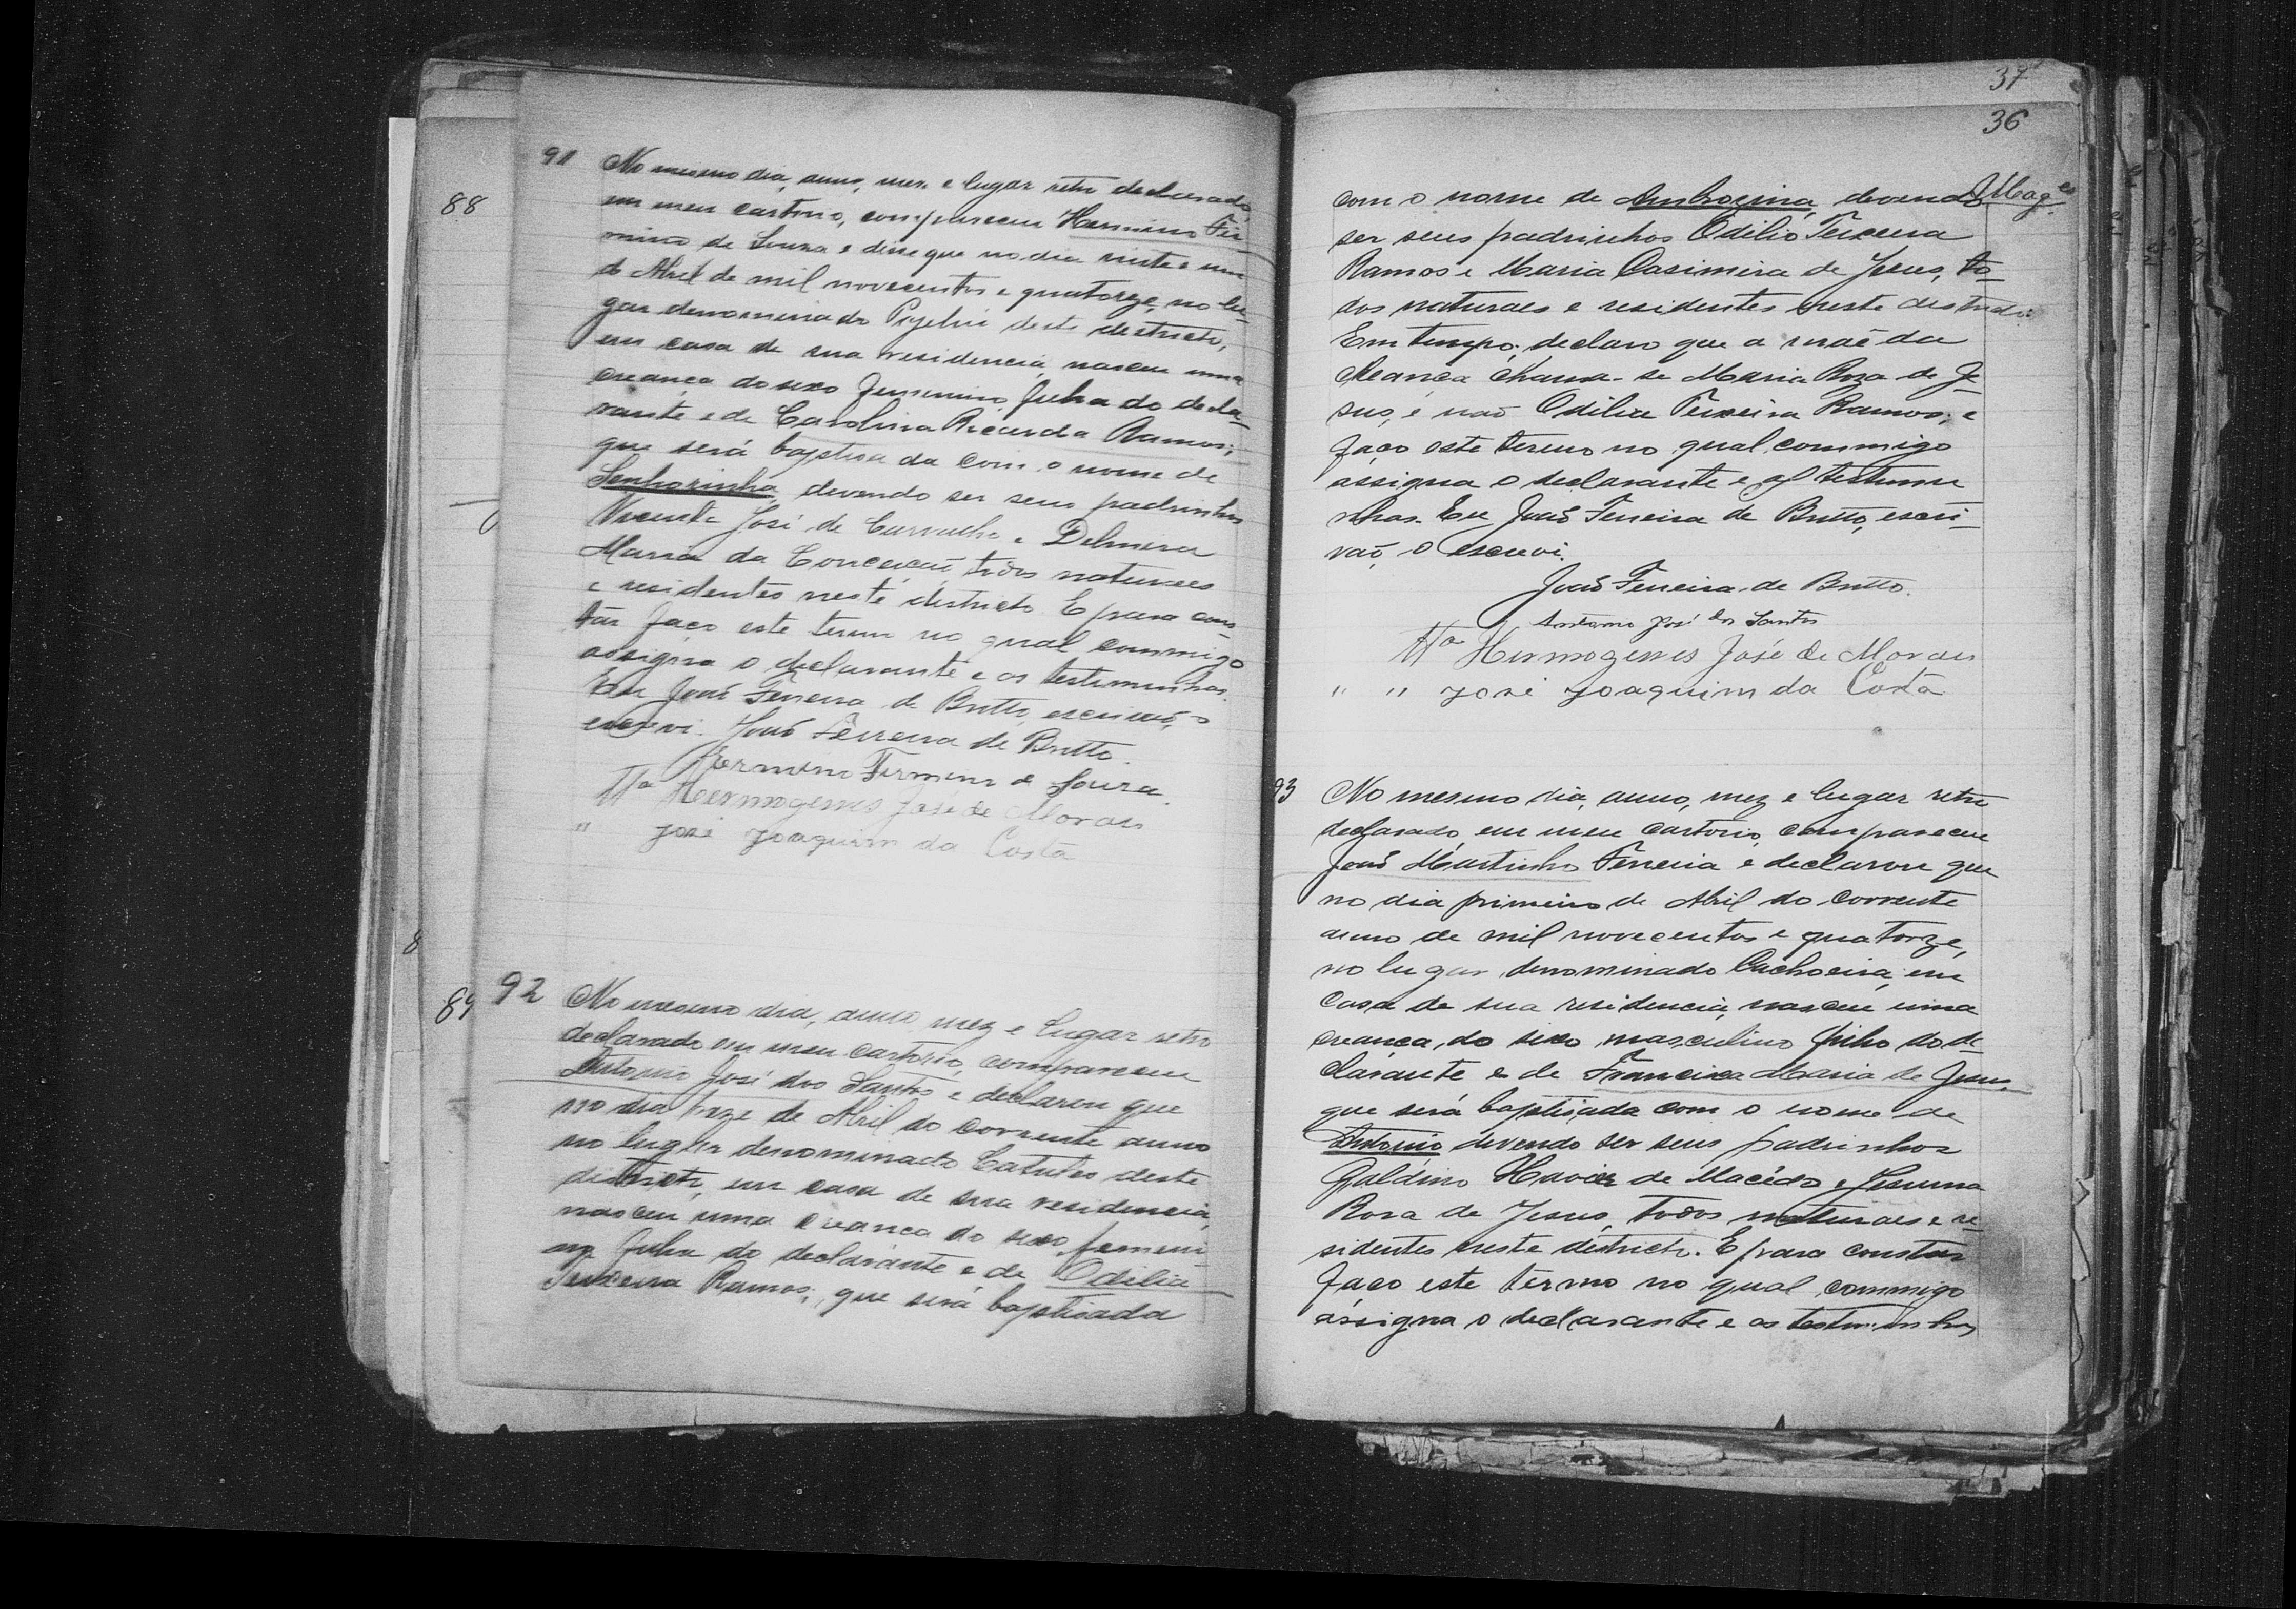 88
91 No mesmo dia, anno, mez e lugar retro declarado,
em meu cartorio, compareceu Hermino Fir
mino de Souza e disse que no dia vinte e um
de Abril de mil novecentos e quatorze, no lu-
gar denominado deste destricto,
em casa de sua residencia, nasceu uma
creança do sexo femenino, filha do decla-
rante e de Carolina Ricarda Ramos;
que será baptisada com o nome de
Senhorinha, devendo ser seus padrinhos
Vicente José de Carvalho e Delmira
Maria da Conceição, todos naturaes
e residentes neste districto. E para cons-
tar faço este termo no qual commigo
assigna o declarante e as testemunhas.
Eu João Ferreira de Britto, escrivão, o
escrevi. João Ferreira de Britto.
Hermino Firmino de Souza.
Ttª Hermogenes José de Morais
" José Joaquim da Costa
8
89
92 No mesmo dia, anno, mez e lugar retro
declarado em meu cartorio, compareceu
Antonio José dos Santos e declarou que
no dia treze de Abril do corrente anno
no lugar denominado Catulés deste
districto, em casa de sua residencia,
nasceu uma creança do sexo femeni
no filha do declarante e de Odilia
Teixeira Ramos; que será baptisada
37
36
com o nome de Ambrozina, devendo
ser seus padrinhos Odilio Teixeira
Ramos e Maria Casimira de Jesus, to-
dos naturaes e residentes neste destricto:
Em tempo: declaro que a mãe da
creança chama-se Maria Roza de Je-
sus, e não Odilia Teixeira Ramos; e
faço este termo no qual commigo
assigna o declarante e as testemu
nhas. Eu João Ferreira de Britto, escri-
vão, o escrevi.
João Ferreira de Britto.
Antonio José dos Santos
Ttª Hermogenes José de Morais
" " José Joaquim da Costa
93 No mesmo dia, anno, mez e lugar retro
declarado, em meu cartorio, compareceu
João Martinho Ferreira e declarou que
no dia primeiro de Abril do corrente
anno de mil novecentos e quatorze,
no lugar denominado Cachoeira, em
casa de sua residencia, nasceu uma
creança, do sexo masculino filho do de-
clarante e de Francisca Maria de Jesus,
que será baptisada com o nome de
Antonio devendo ser seus padrinhos
Galdino Xavier de Macêdo e
Rosa de Jesus, todos naturaes e re-
sidentes neste districto. E para constar
faço este termo no qual commigo
assigna o declarante e as testemunhas